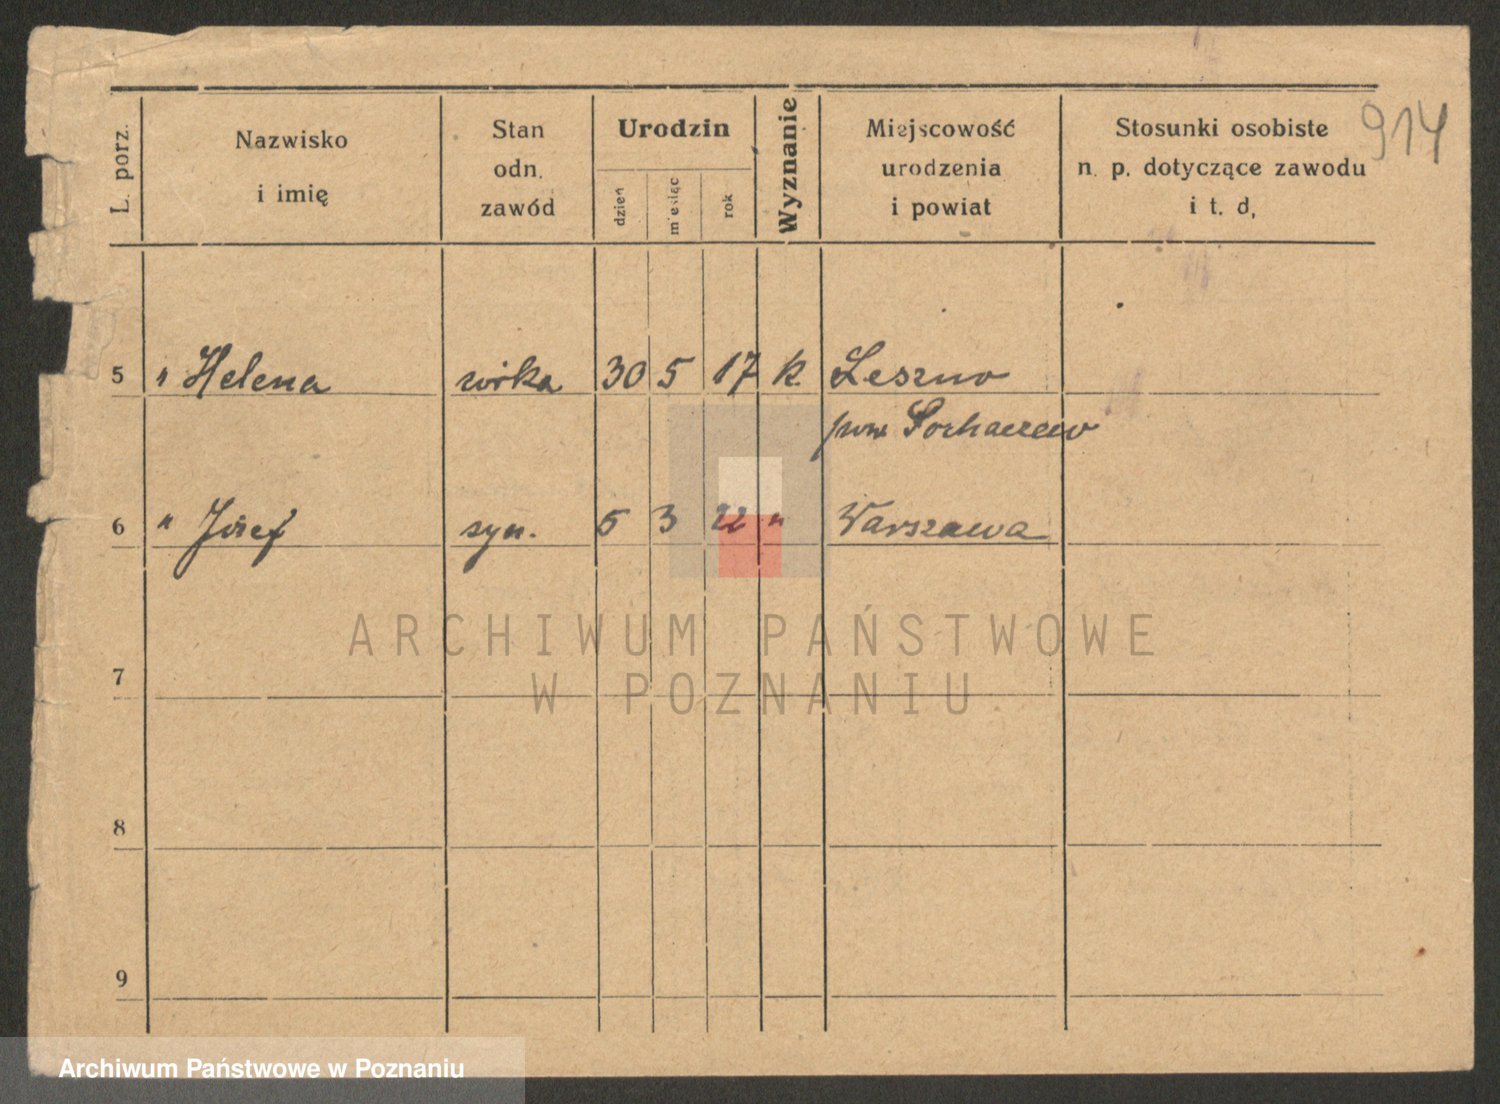 914
L. porz.
Nazwisko
i imię
Stan
odn.
zawód
Urodzin
dzień
miesiąc
rok
Wyznanie
Miejscowość
urodzenia
i powiat
Stosunki osobiste
n. p. dotyczące zawodu
i t. d,
5 " Helena córka 30 5 17 k. Leszno
pow Sochaczew
6 " Józef syn. 5 3 22 " Warszawa
ARCHIWUM PAŃSTWOWE
W POZNANIU
7
8
9
Archiwum Państwowe w Poznaniu